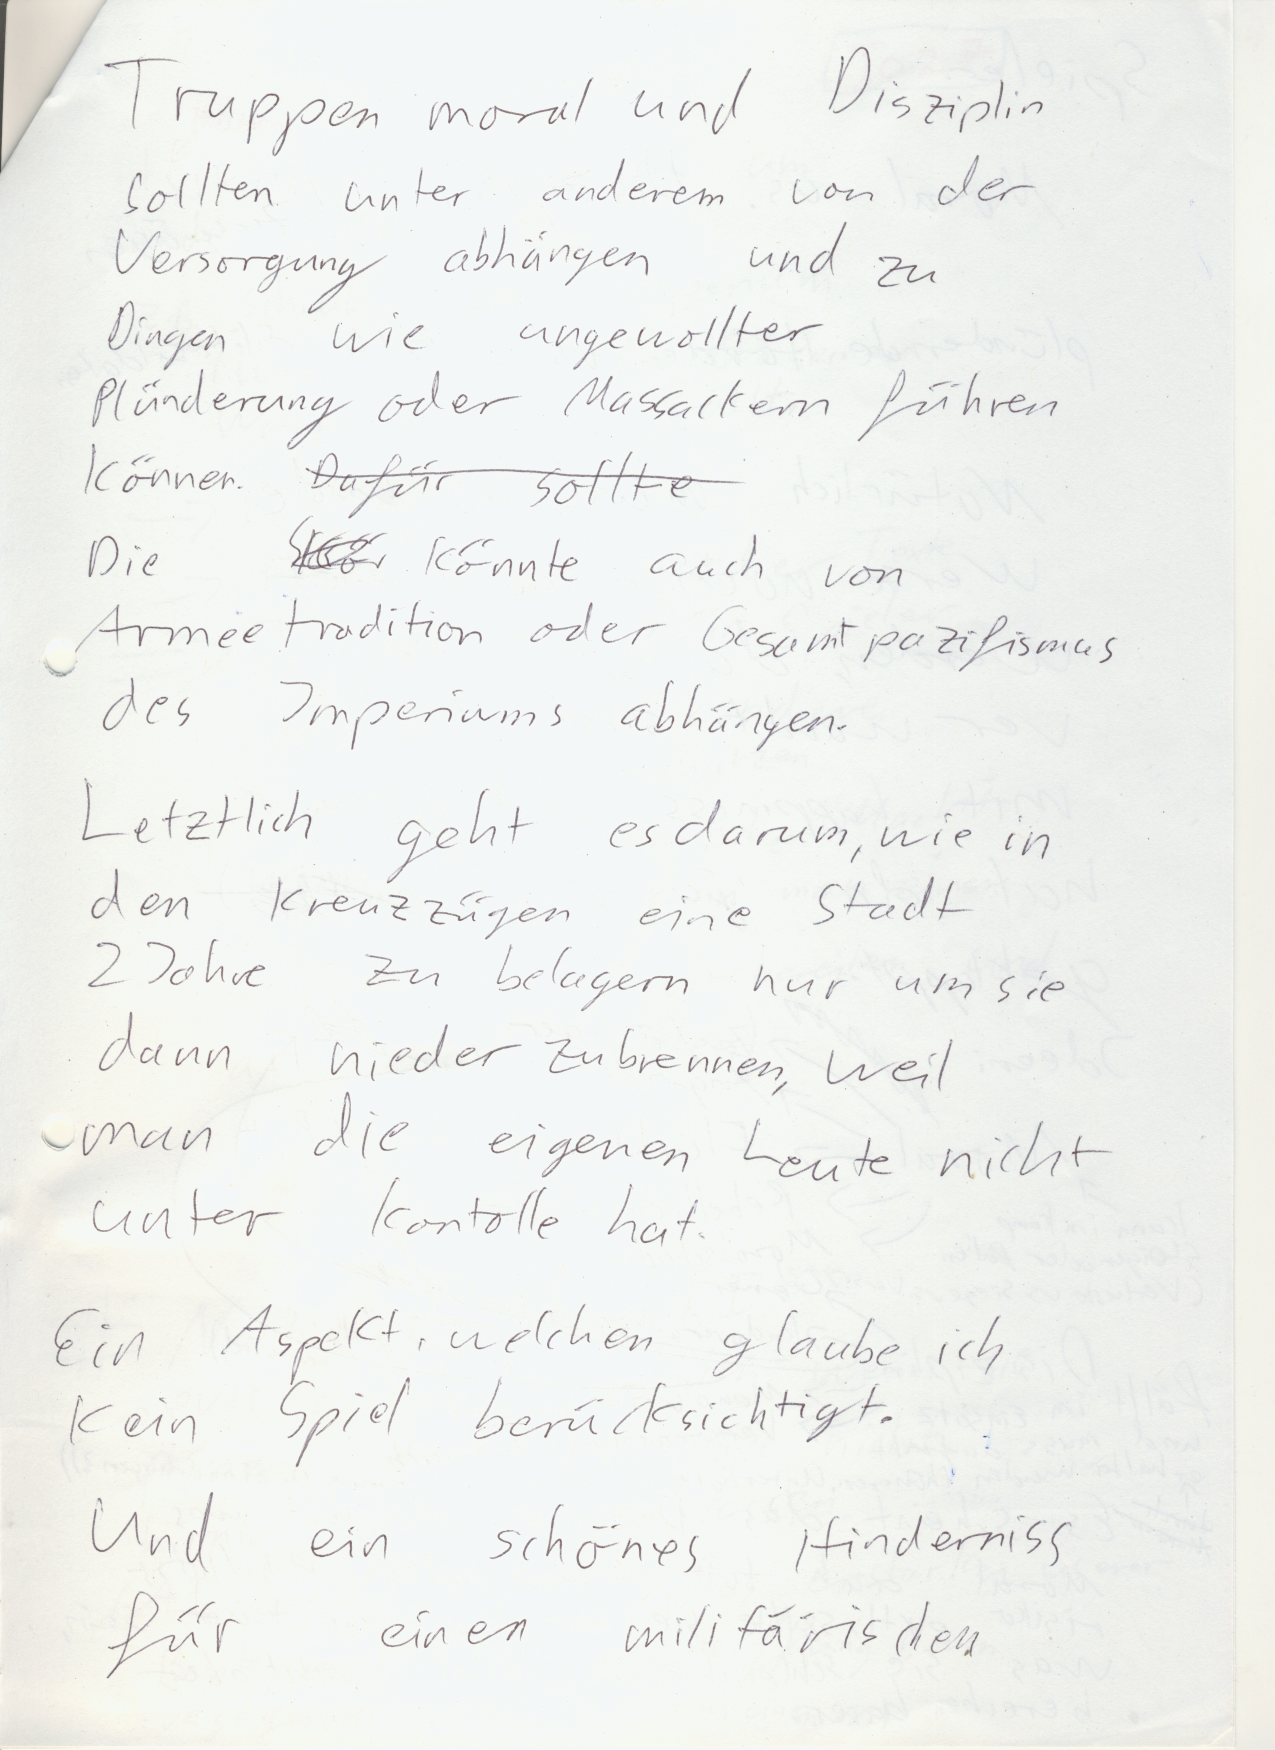 Truppen moral und Disziplin
sollten unter anderem von der
Versorgung abhängen und zu
Dingen wie ungewollter
Plünderung oder Massackern führen
können. Dafür sollte
Die könnte auch von
Armee tradition oder Gesamtpazifismus
des Imperiums abhängen.
Letztlich geht es darum, wie in
den Kreuzzügen eine Stadt
2 Jahre zu belagern nur um sie
dann nieder zubrennen, weil
man die eigenen Leute nicht
unter Kontolle hat.
Ein Aspekt, welchen glaube ich
kein Spiel berücksichtigt.
Und ein schönes Hinderniss
für einen militärischen